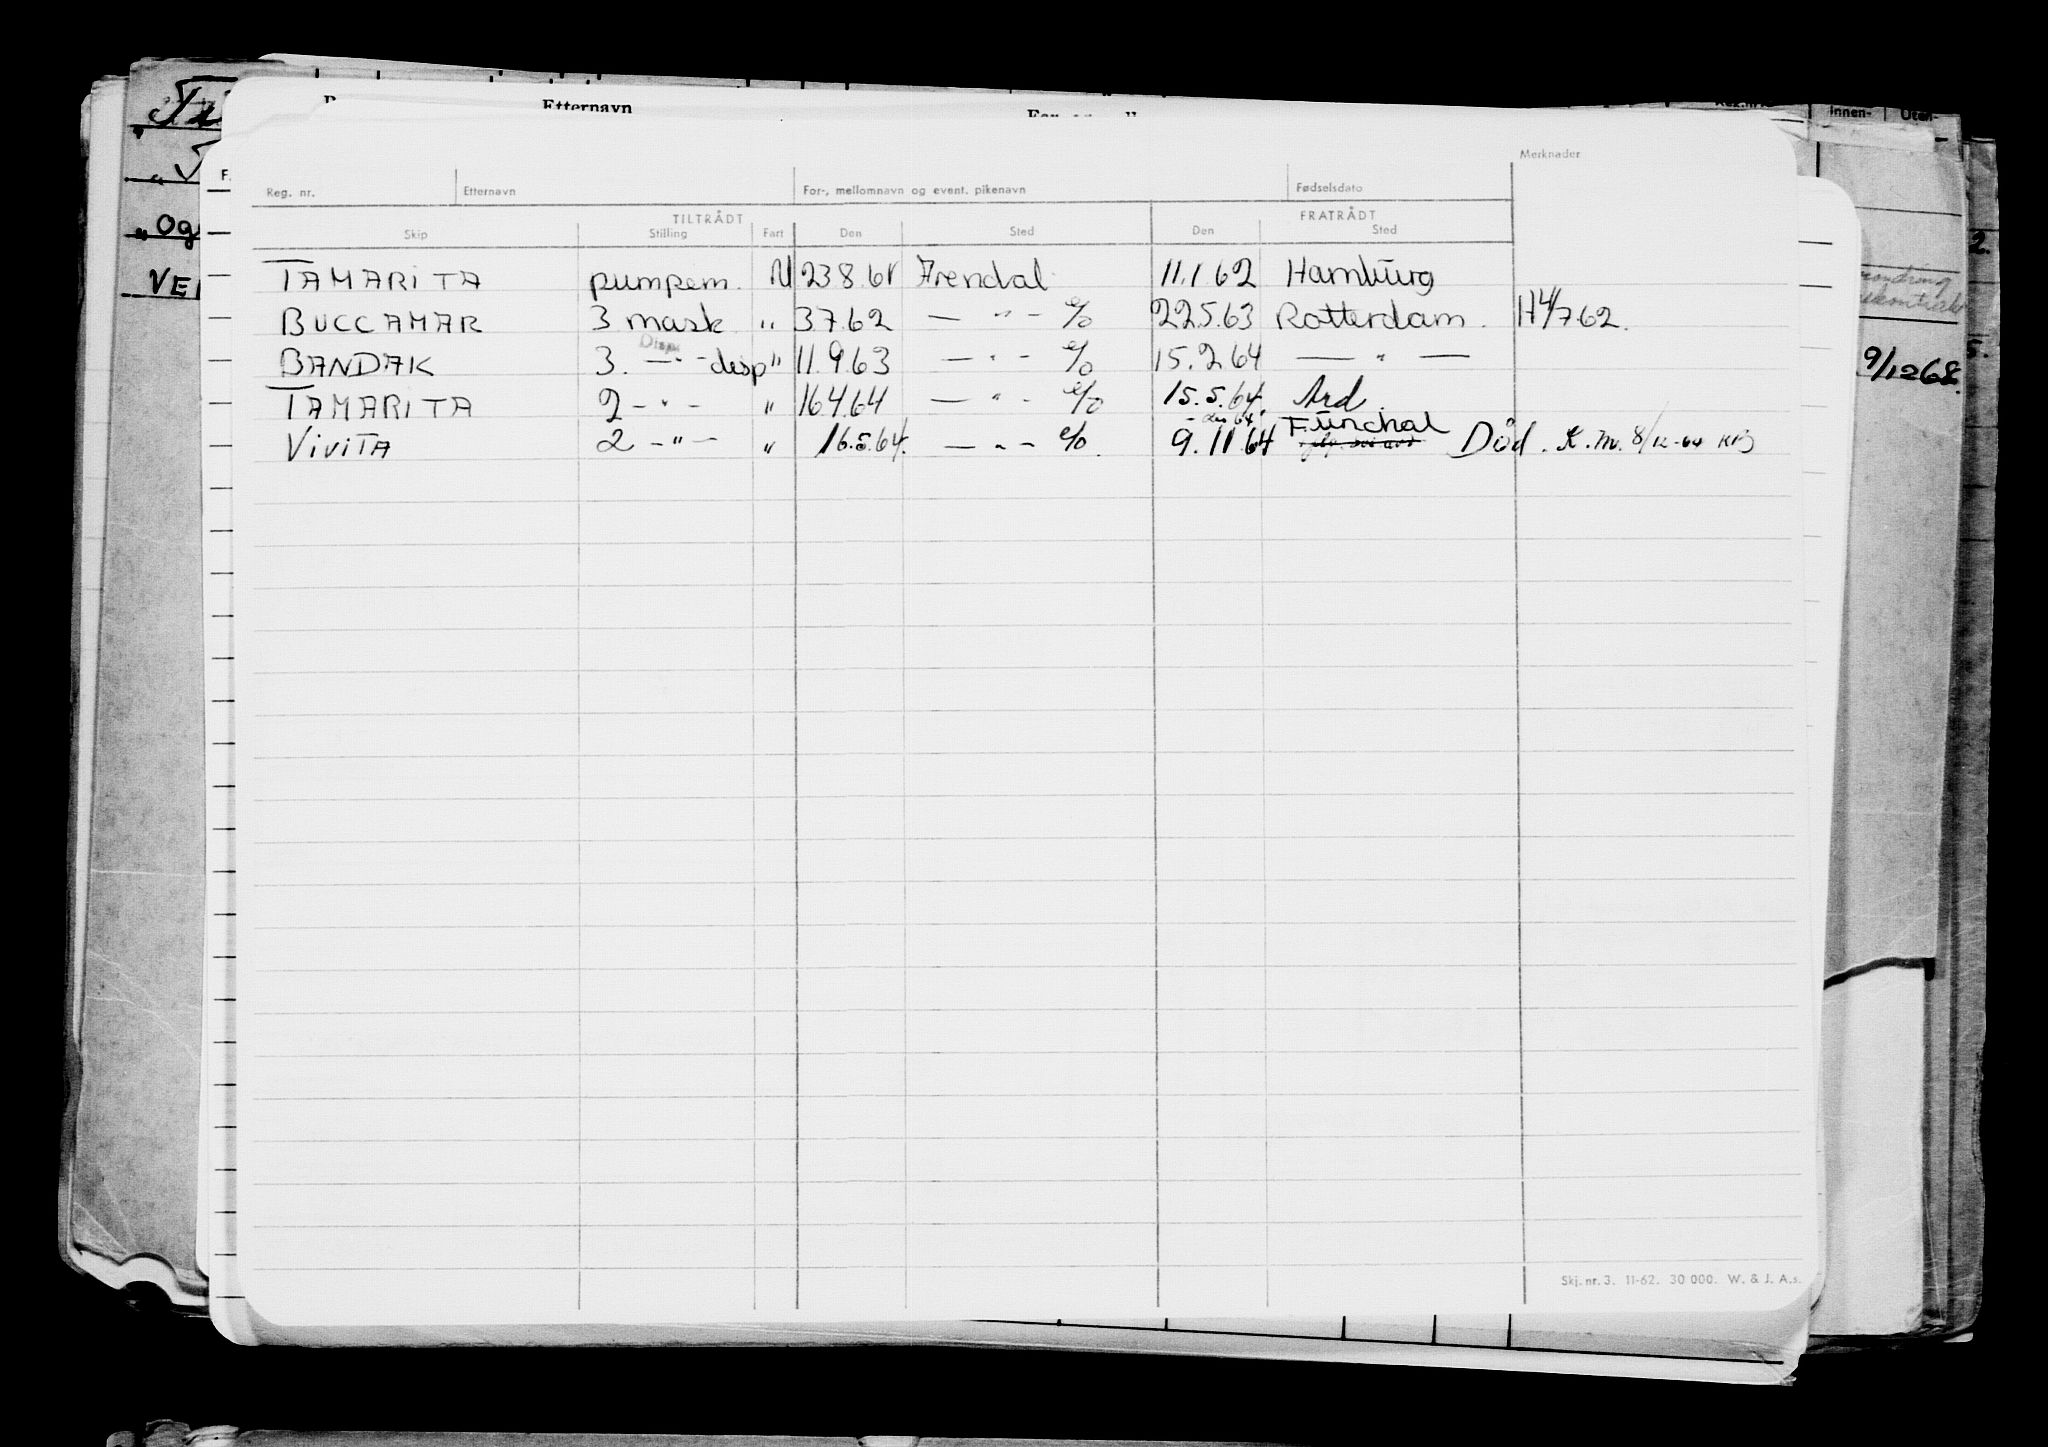 Etternavn
Innen-
Merknader
Reg. nr. Etternavn For-, mellomnavn og event. pikenavn Fødselsdato
TILTRÅDT FRATRÅDT
Skip Stilling Fart Den Sted Den Sted
TAMARITA pumpem. U 23.8.61 Arendal 11.1.62 Hamburg
BUCCAMAR 3 mask " 3.7.62 — " — % 22.5.63 Rotterdam. H 4/7.62.
Disp.
BANDAK 3. — " — desp " 11.9.63 — " — % 15.2.64 — " —
9/12 68.
TAMARITA 2 — " — " 16.4.64 — " — % 15.5.64. Ard
Funchal
VIVITA 2 — " — " 16.5.64. — " — %. 9.11.64 Död. K.M. 8/12-64
Og
VE
Skj. nr. 3. 11-62. 30 000. W. & J. A.s.